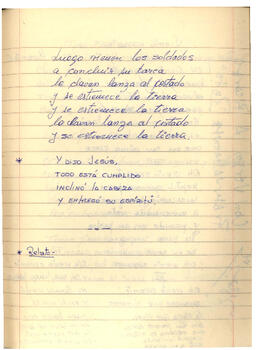 Luego vienen los soldados
a concluir su tarea
le clavan lanza al costado
y se estremece la tierra
y se estremece la tierra
le clavan lanza al costado
y se estremece la tierra.
* Y DIJO JESÚS,
TODO ESTÁ CUMPLIDO
INCLINÓ LA CABEZA
Y ENTREGÓ SU ESPÍRITU.
* Relato-